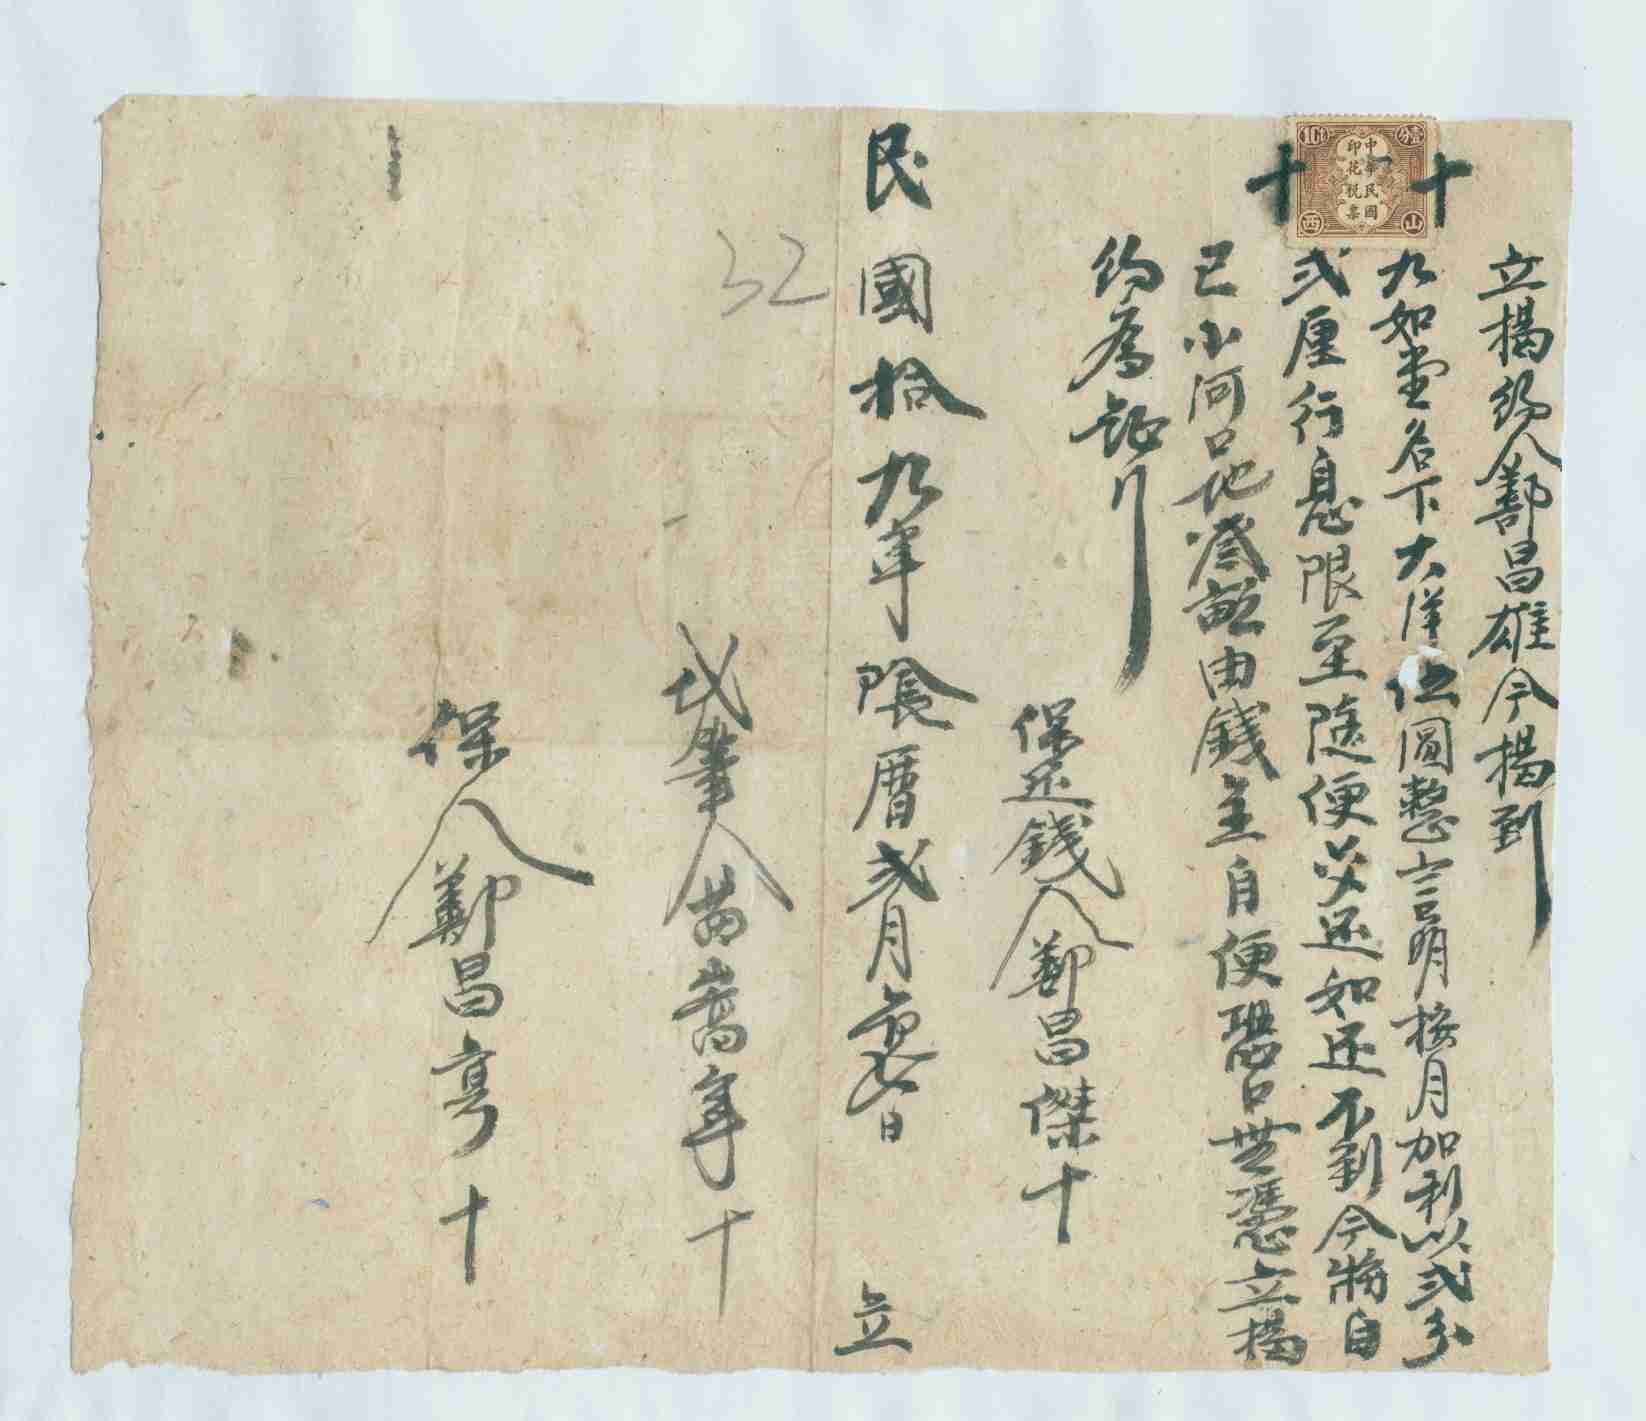 立揭約人鄯昌雄今揭到
九如堂名下大洋伍圓整言明按月加利以弍分
弍厘行息限至隨便交还如还不到今將自
已小河口地叁畝由錢主自便恐口無憑立揭
約為証
保还錢人鄯昌傑十
民國拾九年陰曆弍月初七日
立
代筆人黄嵩年十
保人鄭昌亨十
十
十
壹分
1Ct
中華民國
印花稅票
山
西
32